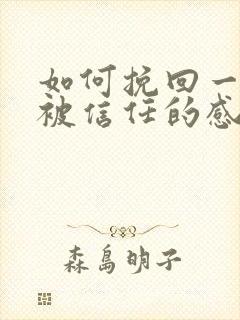 如何挽回一
被信任的感
森島明子